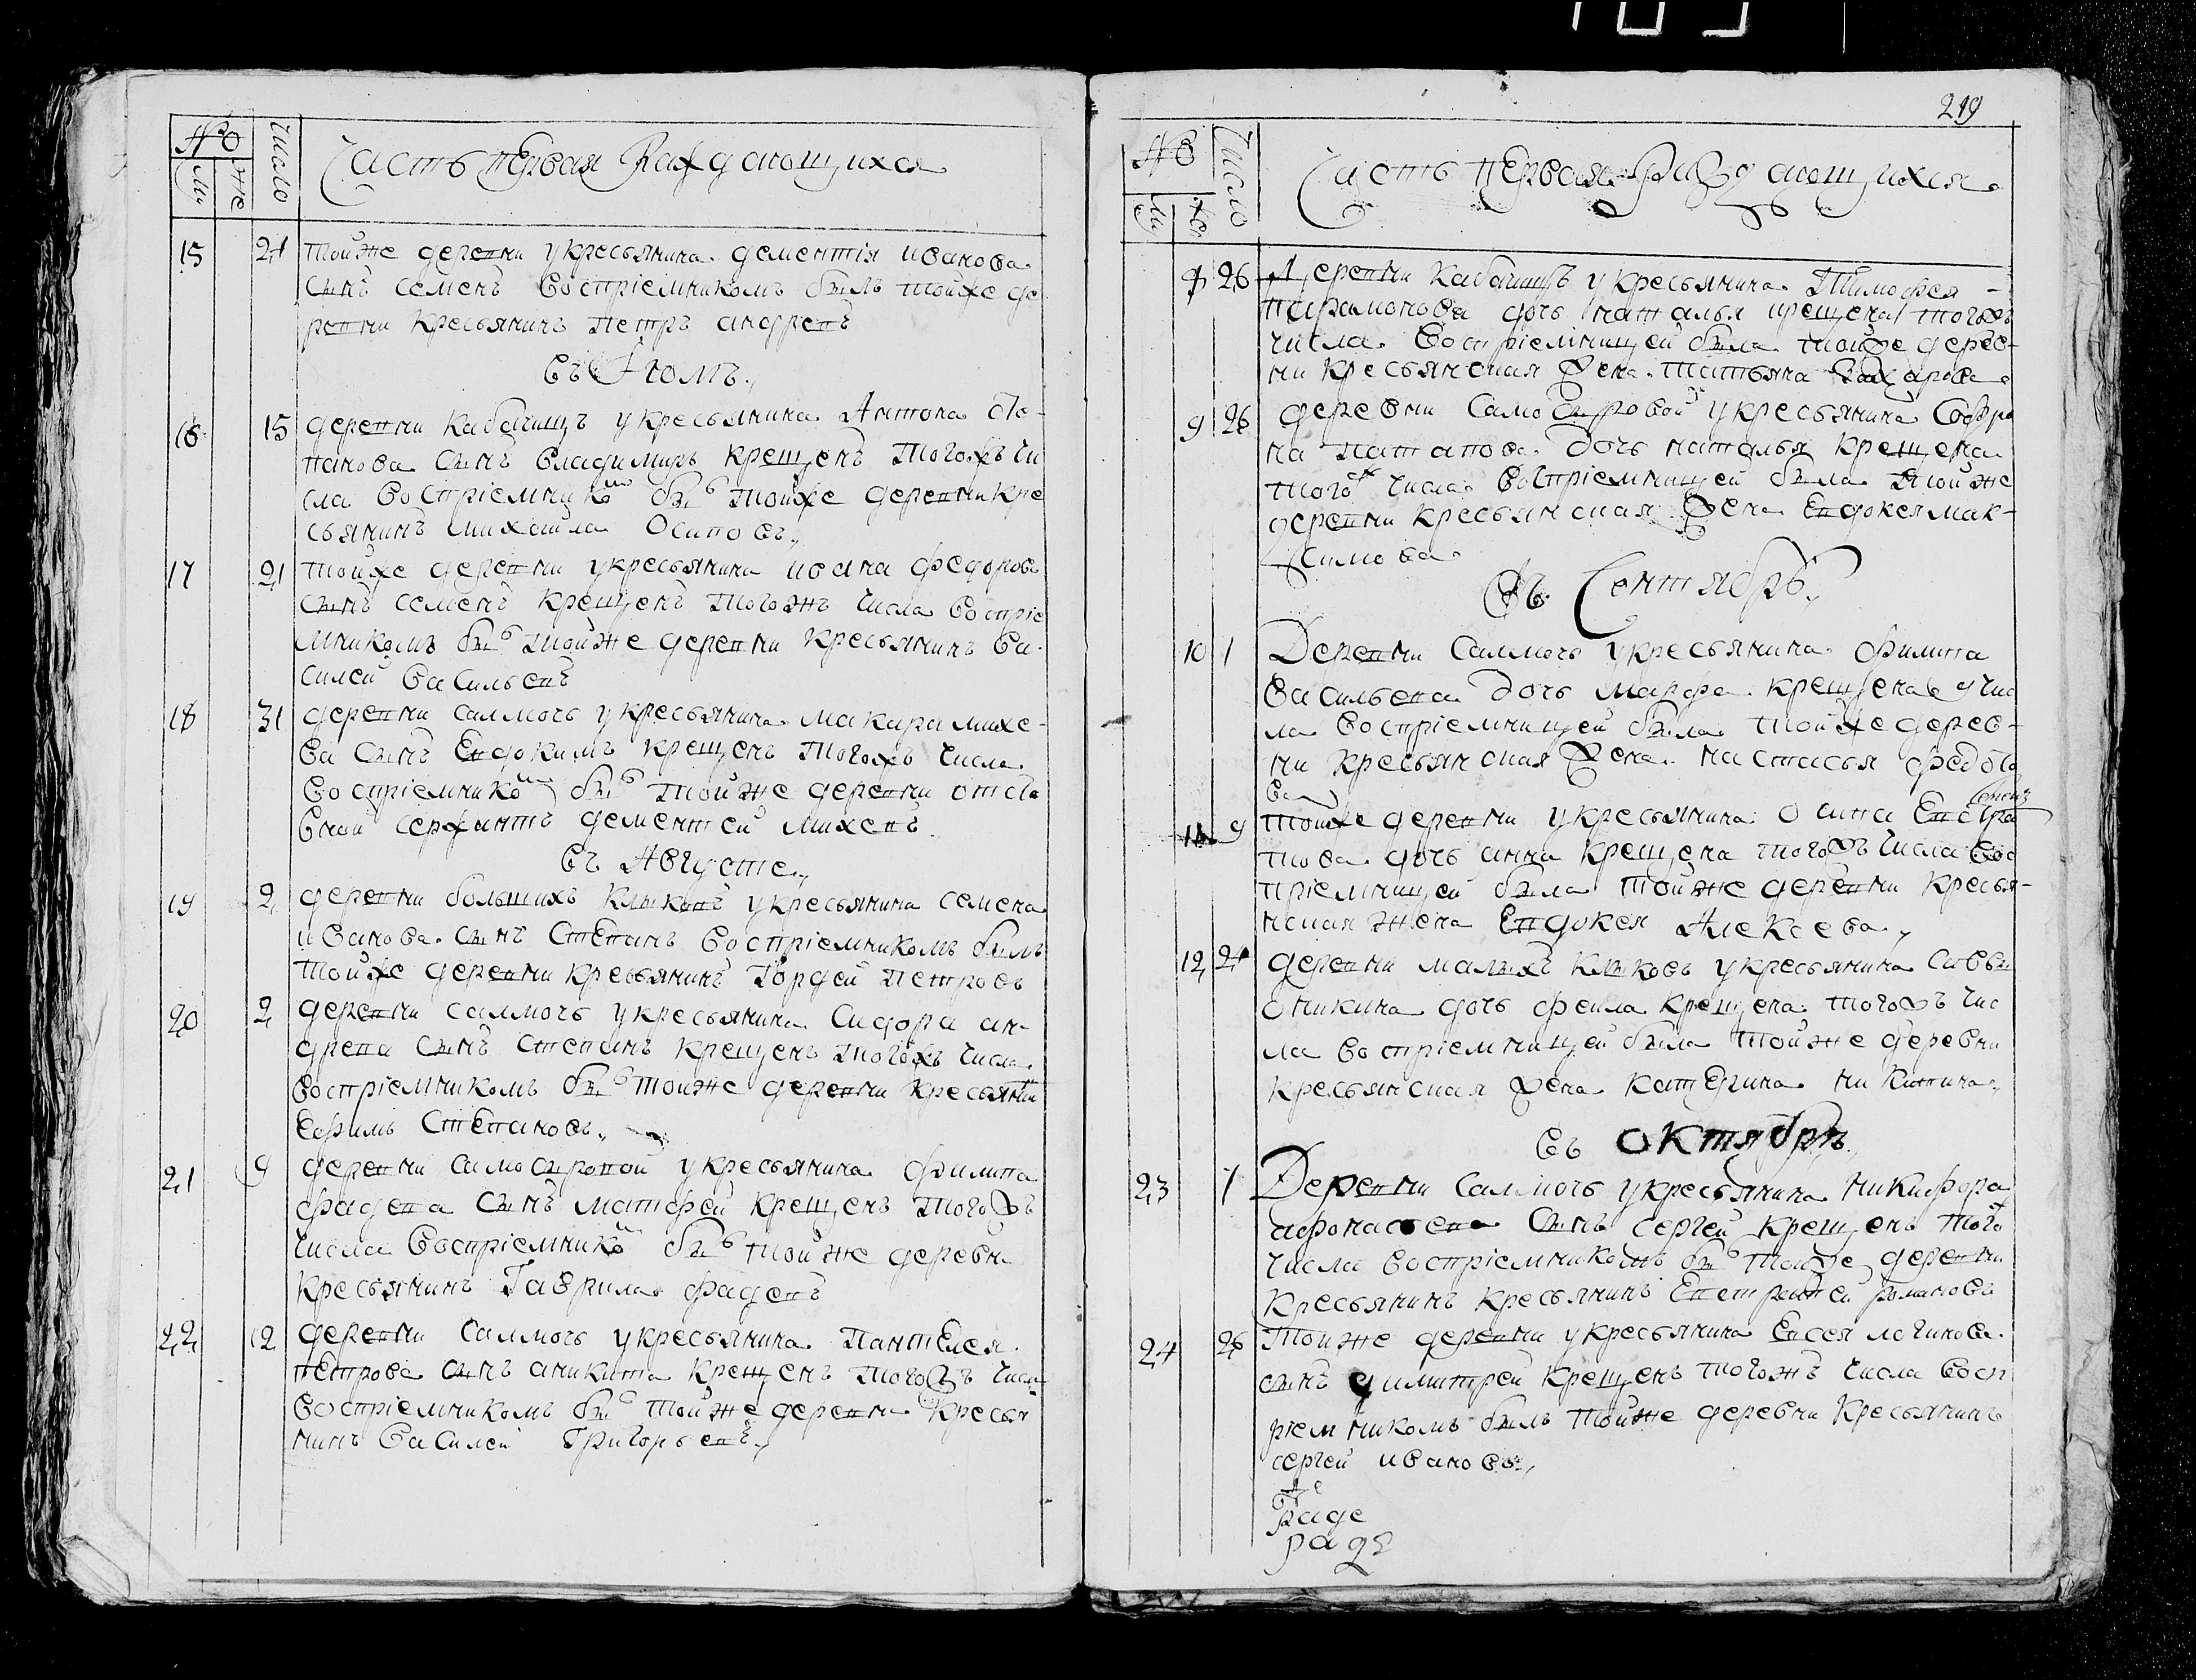 №
му
же
Число
Часть первая Раждающихся
15 21 тойже деревни укресьянина дементія иванова
сынъ семенъ воспріемникомъ былъ тойже де
ревни кресьянинъ петръ андреевъ
въ Іюлѣ
16 15 деревни кабачищъ укресьянина Антона Сте
панова сынъ владимиръ крещенъ тогожъ чи
сла воспріемникомъ былъ тойже деревни кре
сьянинъ михайла Осиповъ
17 21 тойже деревни укресьянина ивана федорова
сынъ семенъ крещенъ тогожъ числа воспріе
мникомъ былъ тойже деревни кресьянинъ Ва
силей васильевъ
18 31 деревни саммочь укресьянина макара михе
ва сынъ Евдокимъ крещенъ тогожъ числа
воспріемникомъ былъ тойже деревни отста
вной сержантъ дементей михевъ
въ Августе
19 2 деревни большихъ клыковъ укресьянина семена
иванова сынъ Степанъ воспріемникомъ былъ
тойже деревни кресьянинъ Гордей петровъ
20 2 деревни саммочь укресьянина Сидора ан
древа сынъ степанъ крещенъ тогожъ числа
воспріемникомъ былъ тойже деревни кресьянин
Ефимъ Степановъ
21 9 деревни самосыровой укресьянина филипа
фадева сынъ матфей крещенъ тогожъ
числа воспріемникомъ былъ тойже деревни
кресьянинъ Гаврила фадевъ
22 12 деревни саммочь укресьянина Пантелея
петрова сынъ аникита крещенъ тогожъ числа
воспріемникомъ былъ тойже деревни кресья
нинъ василей Григорьевъ
219
№
му
же
Число
Часть первая раждающихся
8 26 Деревни кабачищъ укресьянина Тимофея
парамонова дочь наталья крещена тогожъ
числа воспріемницей была тойже дерев
ни кресьянская жена татьяна Захарова
9 26 деревни самосыровой укресьянина Софро
на патапова дочь наталья крещена
того ж числа воспріемницей была тойже
деревни кресьянская жена Евдокея мак
симова
Въ Сентябрѣ
10 1 Деревни саммочь укресьянина филипа
васильева дочь марфа крещена чис
ла воспріемницей была тойже дерев
ни кресьянская жена настасья федото
ва
11 9 тойже деревни укресьянина Осипа Евстра
това дочь анна крещена тогожъ числа вос
пріемницей была тойже деревни кресья
нская жена Евдокея Алексева
12 21 деревни малыхъ клыковъ укресьянина Савы
аникина дочь фекла крещена тогожъ чис
ла воспріемницей была тойже деревни
кресьянская жена катерина никитина
въ октябрѣ
23 1 Деревни саммочь укресьянина никифора
афонасьева сынъ сергей крещенъ того
числа воспріемникомъ былъ тойже деревни
кресьянинъ кресьянинъ Евстратей романовъ
24 26 тойже деревни укресьянина Евсея логинова
сынъ димитрей крещенъ тогожъ числа восп
риемникомъ былъ тойже деревни кресьянинъ
сергей ивановъ
раде
раде